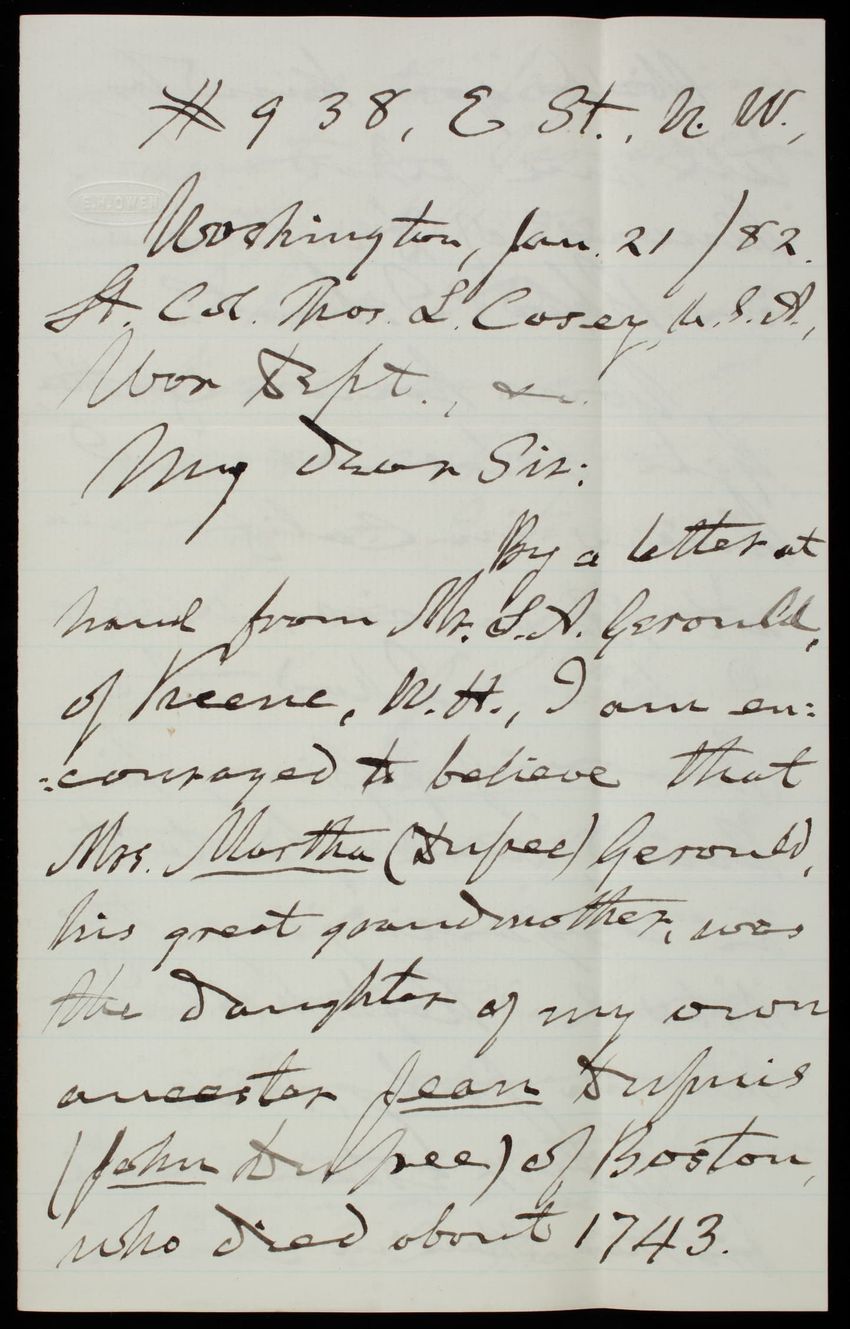 # 938, E St., N. W.,
E.H.OWEN
Washington, Jan. 21 /82.
Lt. Col. Thos. L. Casey, U.S.A.,
War Dept., &c.
My dear Sir:
By a letter at
hand from Mr. S.A. Gerould,
of Keene, N.H., I am en:
:couraged to believe that
Mrs. Martha (Dupee) Gerould,
his great grandmother, was
the daughter of my own
ancestor Jean Dupuis
(John Dupee) of Boston,
who died about 1743.